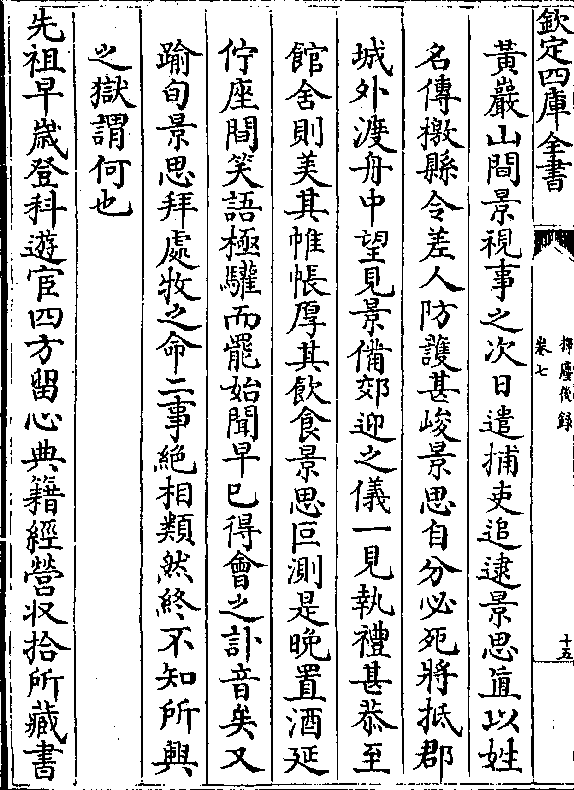 欽定四庫全書
揮麈後録
卷七
十五
黃巖山間景視事之次日遣捕吏追逮景思直以姓
名傳檄縣令差人防護甚峻景思自分必死將抵郡
城外渡舟中望見景備郊迎之儀一見執禮甚恭至
館舍則美其帷帳厚其飲食景思叵測是晚置酒延
佇座間笑語極驩而罷始聞早已得會之訃音矣又
踰旬景思拜處牧之命二事絶相類然終不知所興
之獄謂何也
先祖早歲登科遊宦四方留心典籍經營収拾所藏書